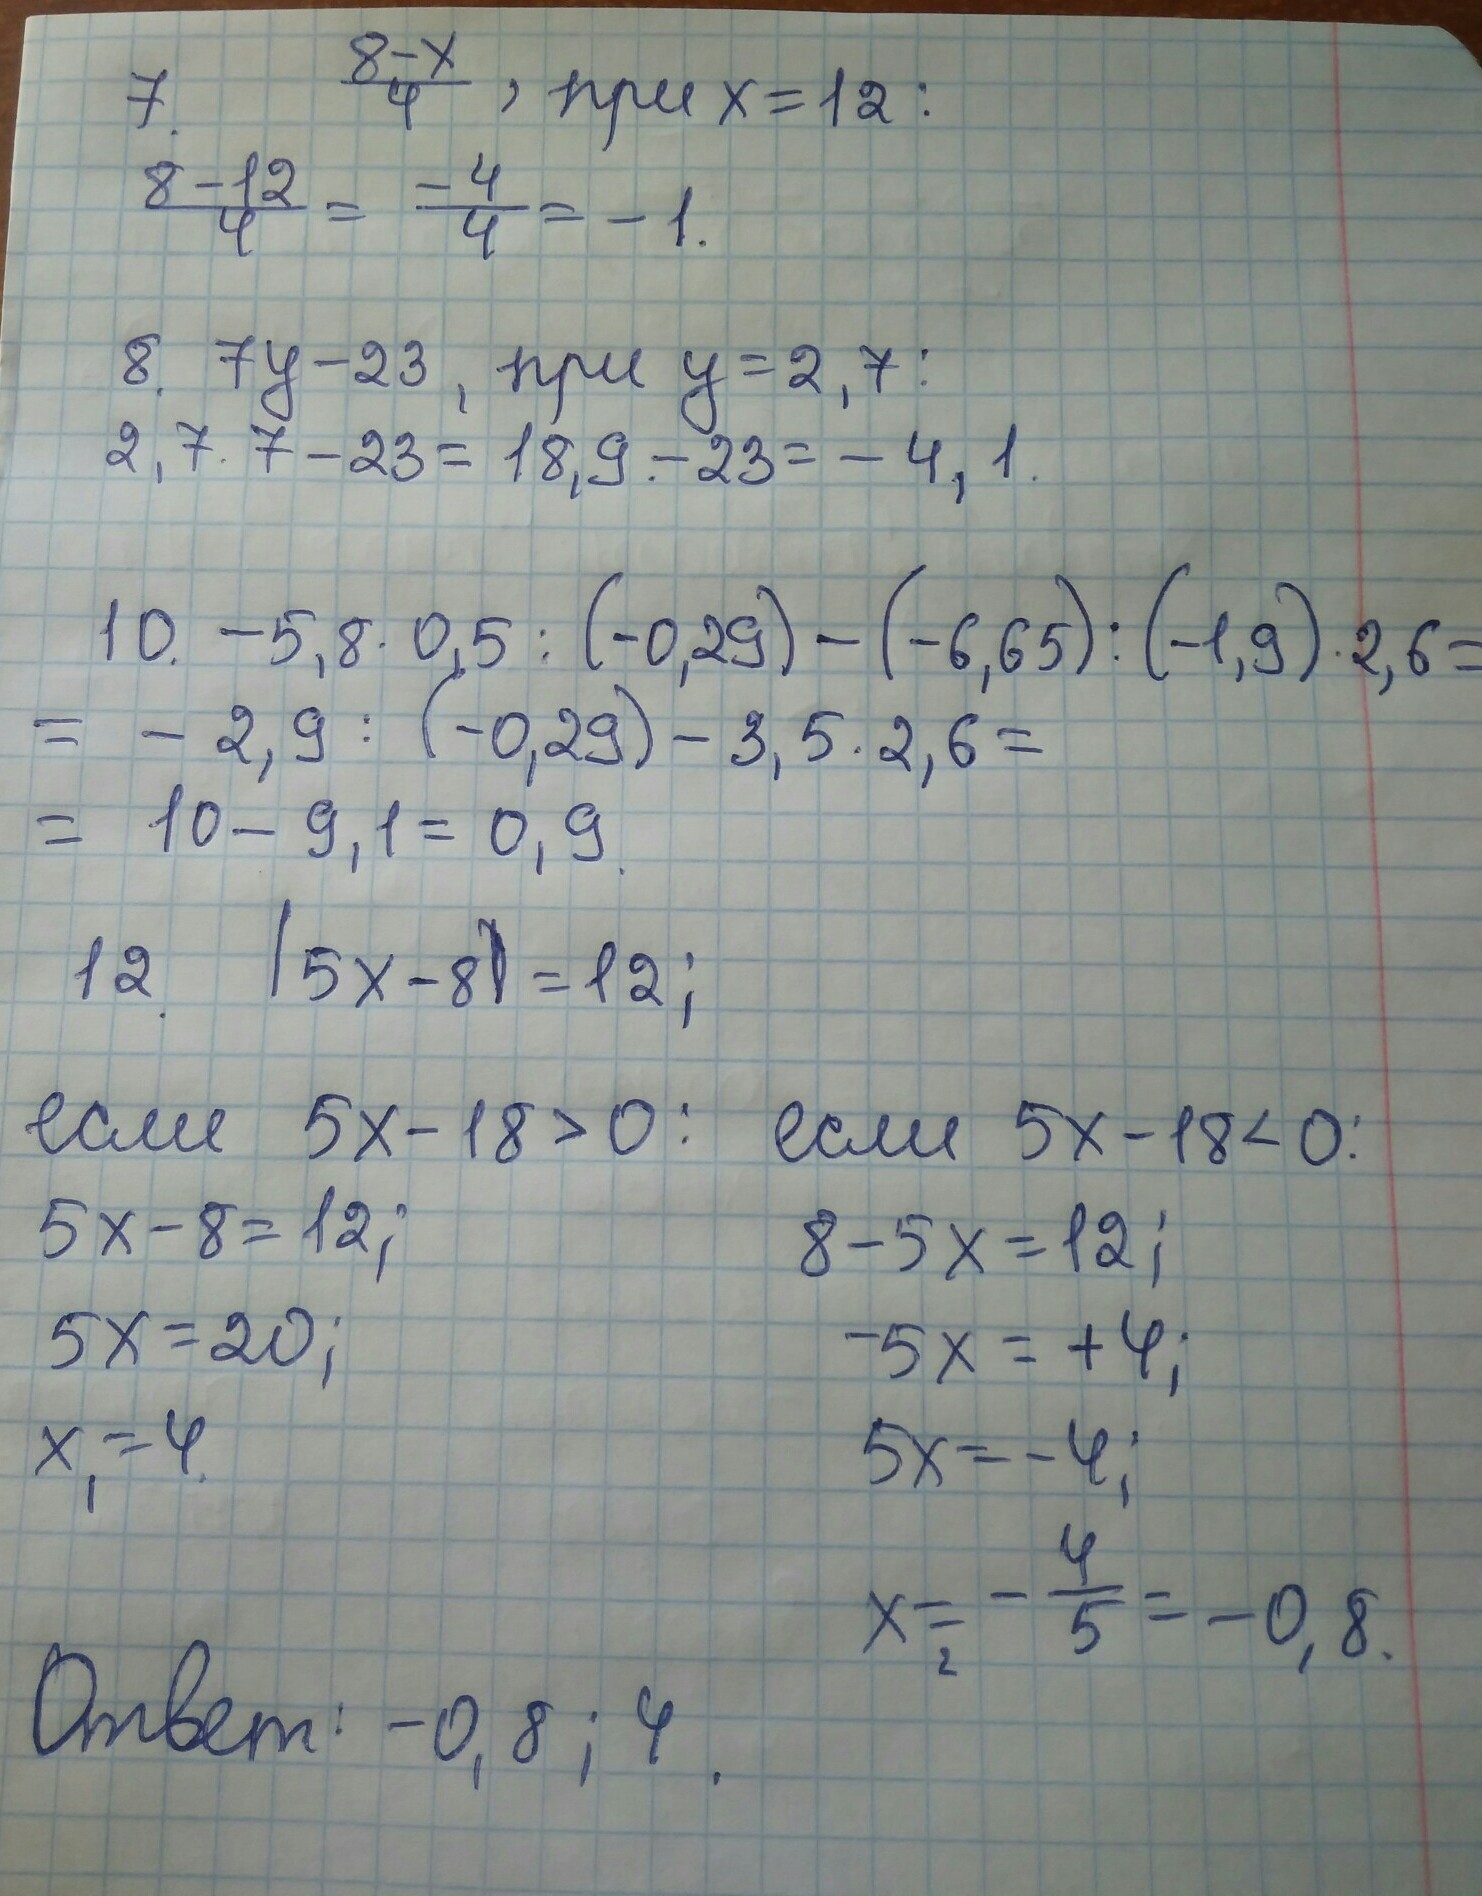 7. (8-x)/4, при x=12:
(8-12)/4 = (-4)/4 = -1.
8. 7y-23, при y=2,7:
2,7·7-23=18,9-23=-4,1.
10. -5,8·0,5:(-0,29)-(-6,65):(-1,9)·2,6=
= -2,9:(-0,29)-3,5·2,6=
= 10-9,1=0,9.
12. |5x-8|=12;
если 5x-18>0: если 5x-18<0:
5x-8=12; 8-5x=12;
5x=20; -5x=+4;
x₁=4. 5x=-4;
x₂=-4/5=-0,8.
Ответ: -0,8; 4.